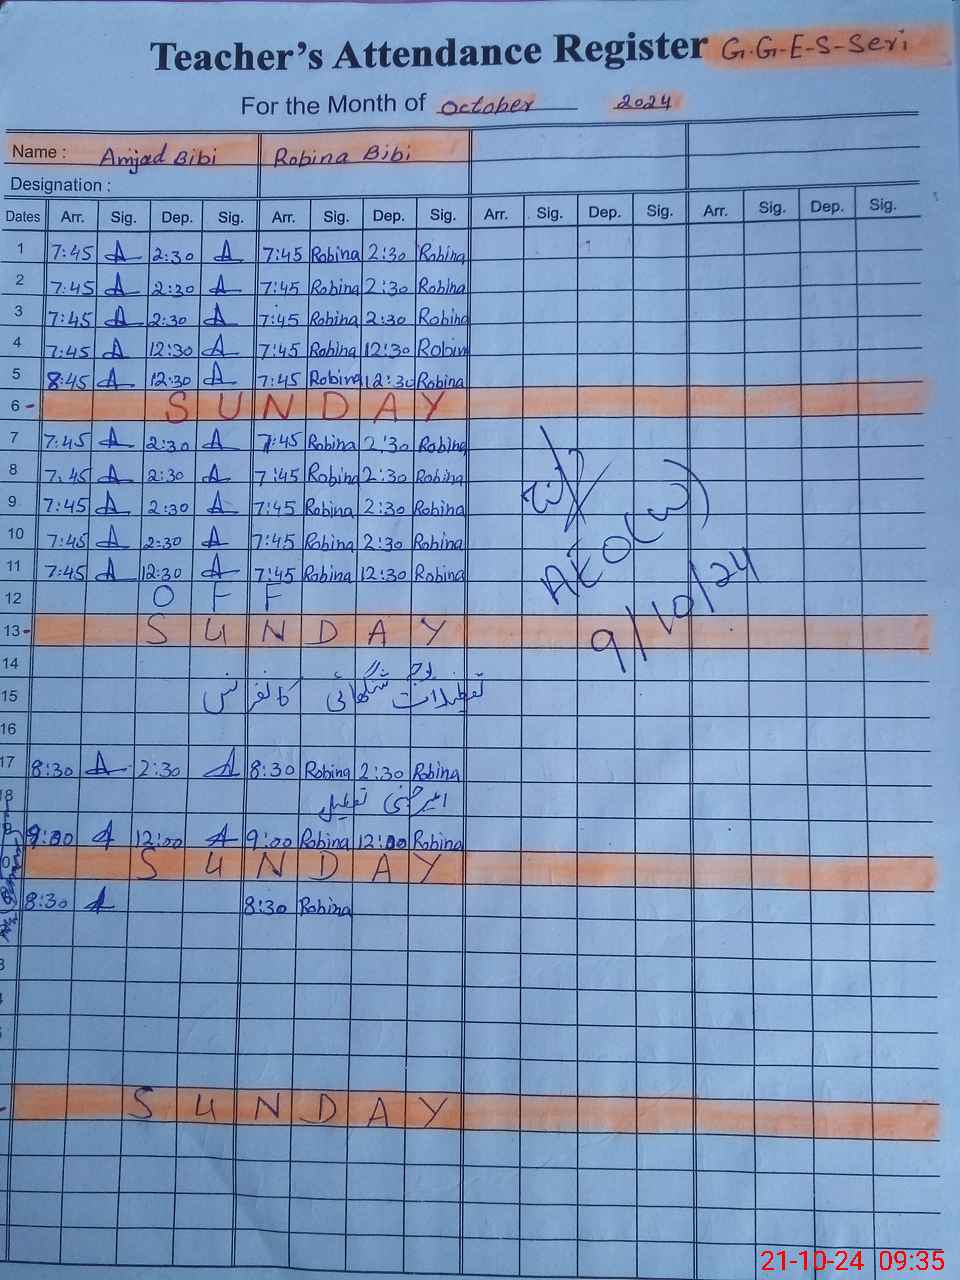 Teacher's Attendance Register G.G-E-S-Seri
For the Month of October 2024
Name : Amjad Bibi Robina Bibi
Designation :
Dates Arr. Sig. Dep. Sig. Arr. Sig. Dep. Sig. Arr. Sig. Dep. Sig. Arr. Sig. Dep. Sig.
1 7:45 A 2:30 A 7:45 Robina 2:30 Robina
2 7:45 A 2:30 A 7:45 Robina 2:30 Robina
3 7:45 A 2:30 A 7:45 Robina 2:30 Robina
4 7:45 A 12:30 A 7:45 Robina 12:30 Robin
5 8:45 A 12:30 A 7:45 Robina 12:30 Robina
6 - SUNDAY
7 7:45 A 2:30 A 7:45 Robina 2:30 Robina
8 7:45 A 2:30 A 7:45 Robina 2:30 Robina
9 7:45 A 2:30 A 7:45 Robina 2:30 Robina
10 7:45 A 2:30 A 7:45 Robina 2:30 Robina
11 7:45 A 12:30 A 7:45 Robina 12:30 Robina
AEO(W)
9/10/24
12 OFF
13 - SUNDAY
14
15 تعطیلات شنگھائی کانفرنس
16
17 8:30 A 2:30 A 8:30 Robina 2:30 Robina
18 تعطیل
9:00 A 12:00 A 9:00 Robina 12:00 Robina
SUNDAY
8:30 A 8:30 Robina
SUNDAY
21-10-24 09:35